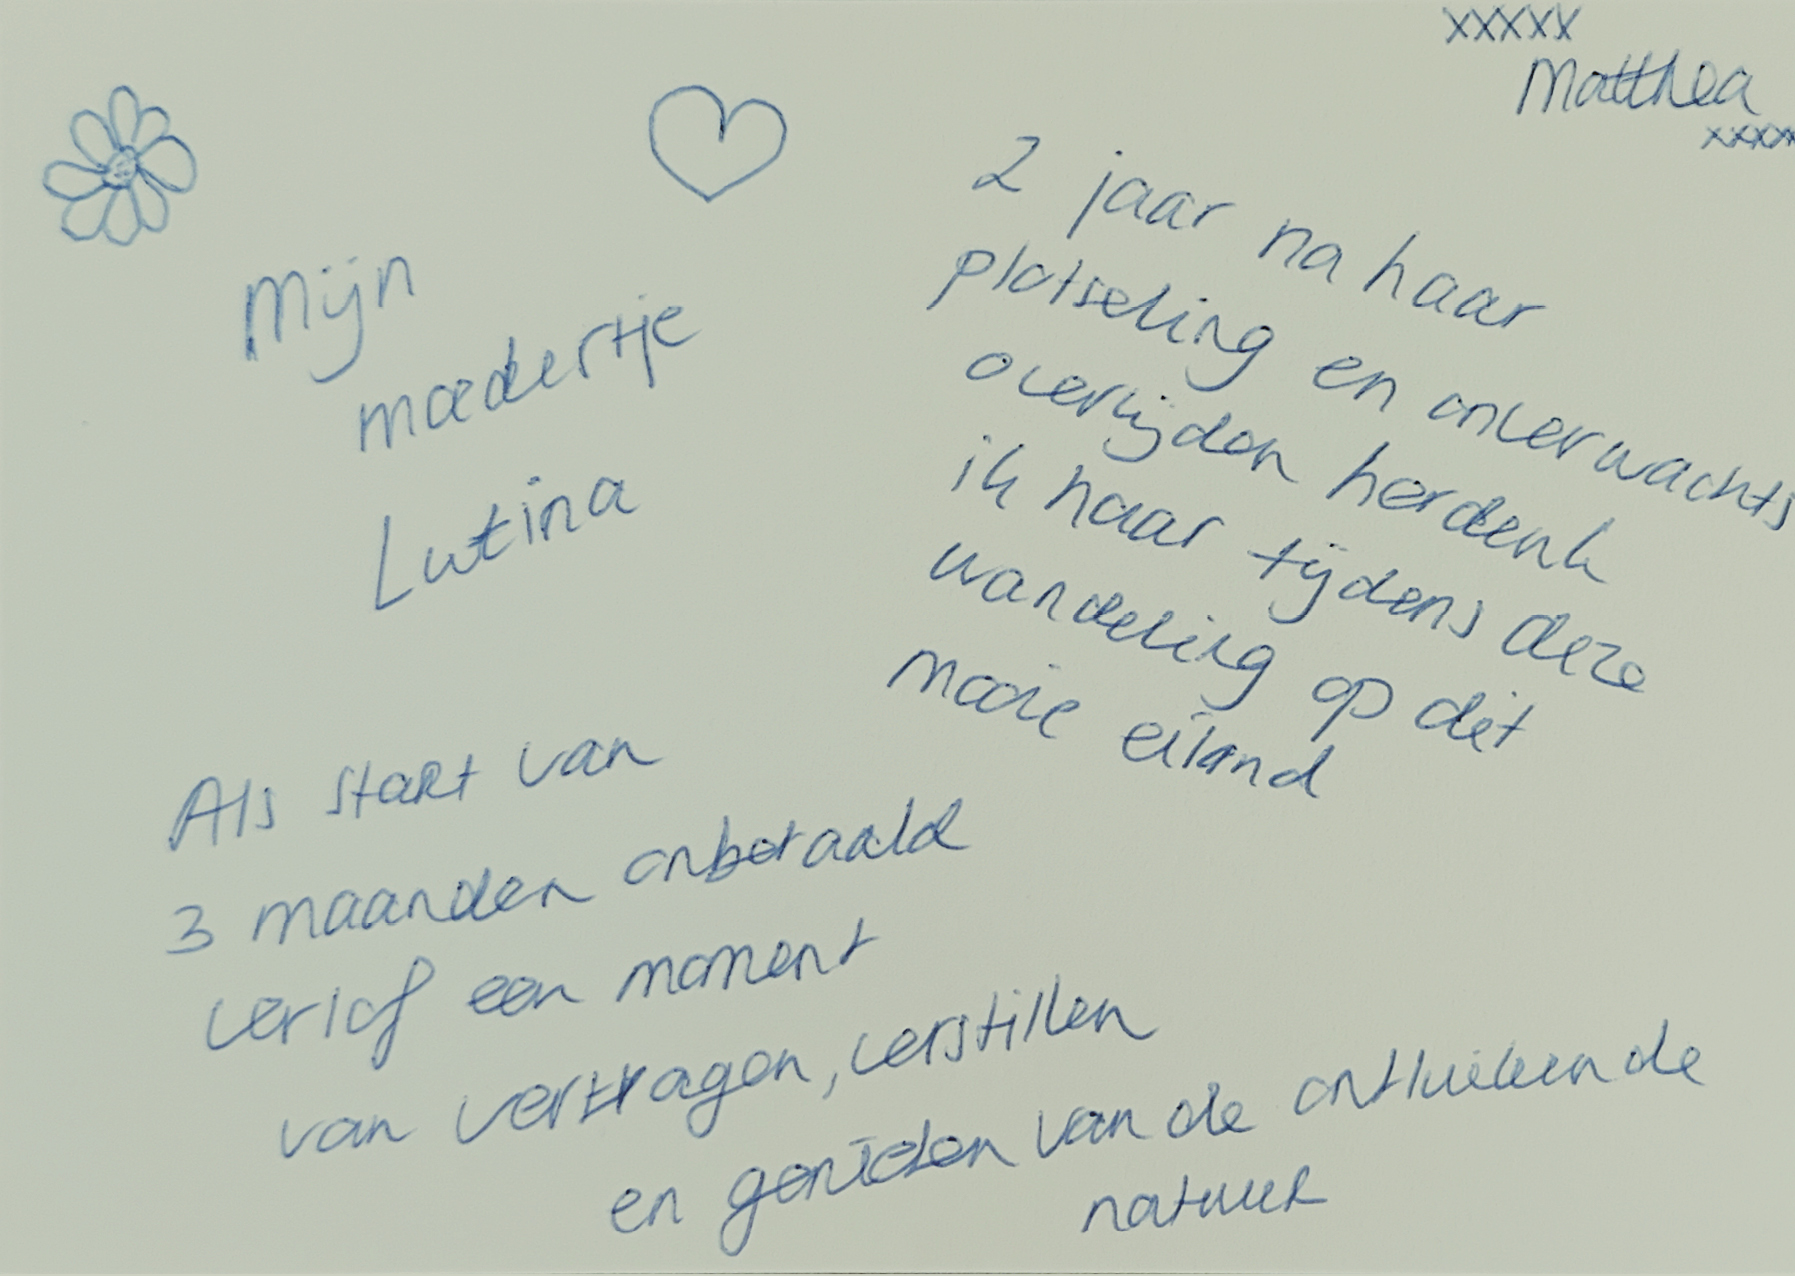 Mijn
moedertje
Lutina
2 jaar na haar
plotseling en onverwachts
overlijden herdenk
ik haar tijdens deze
wandeling op dit
mooie eiland
Als start van
3 maanden onbetaald
verlof een moment
van vertragen, verstillen
en genieten van de ontluikende
natuur
xxxxx
Matthea
xxxx